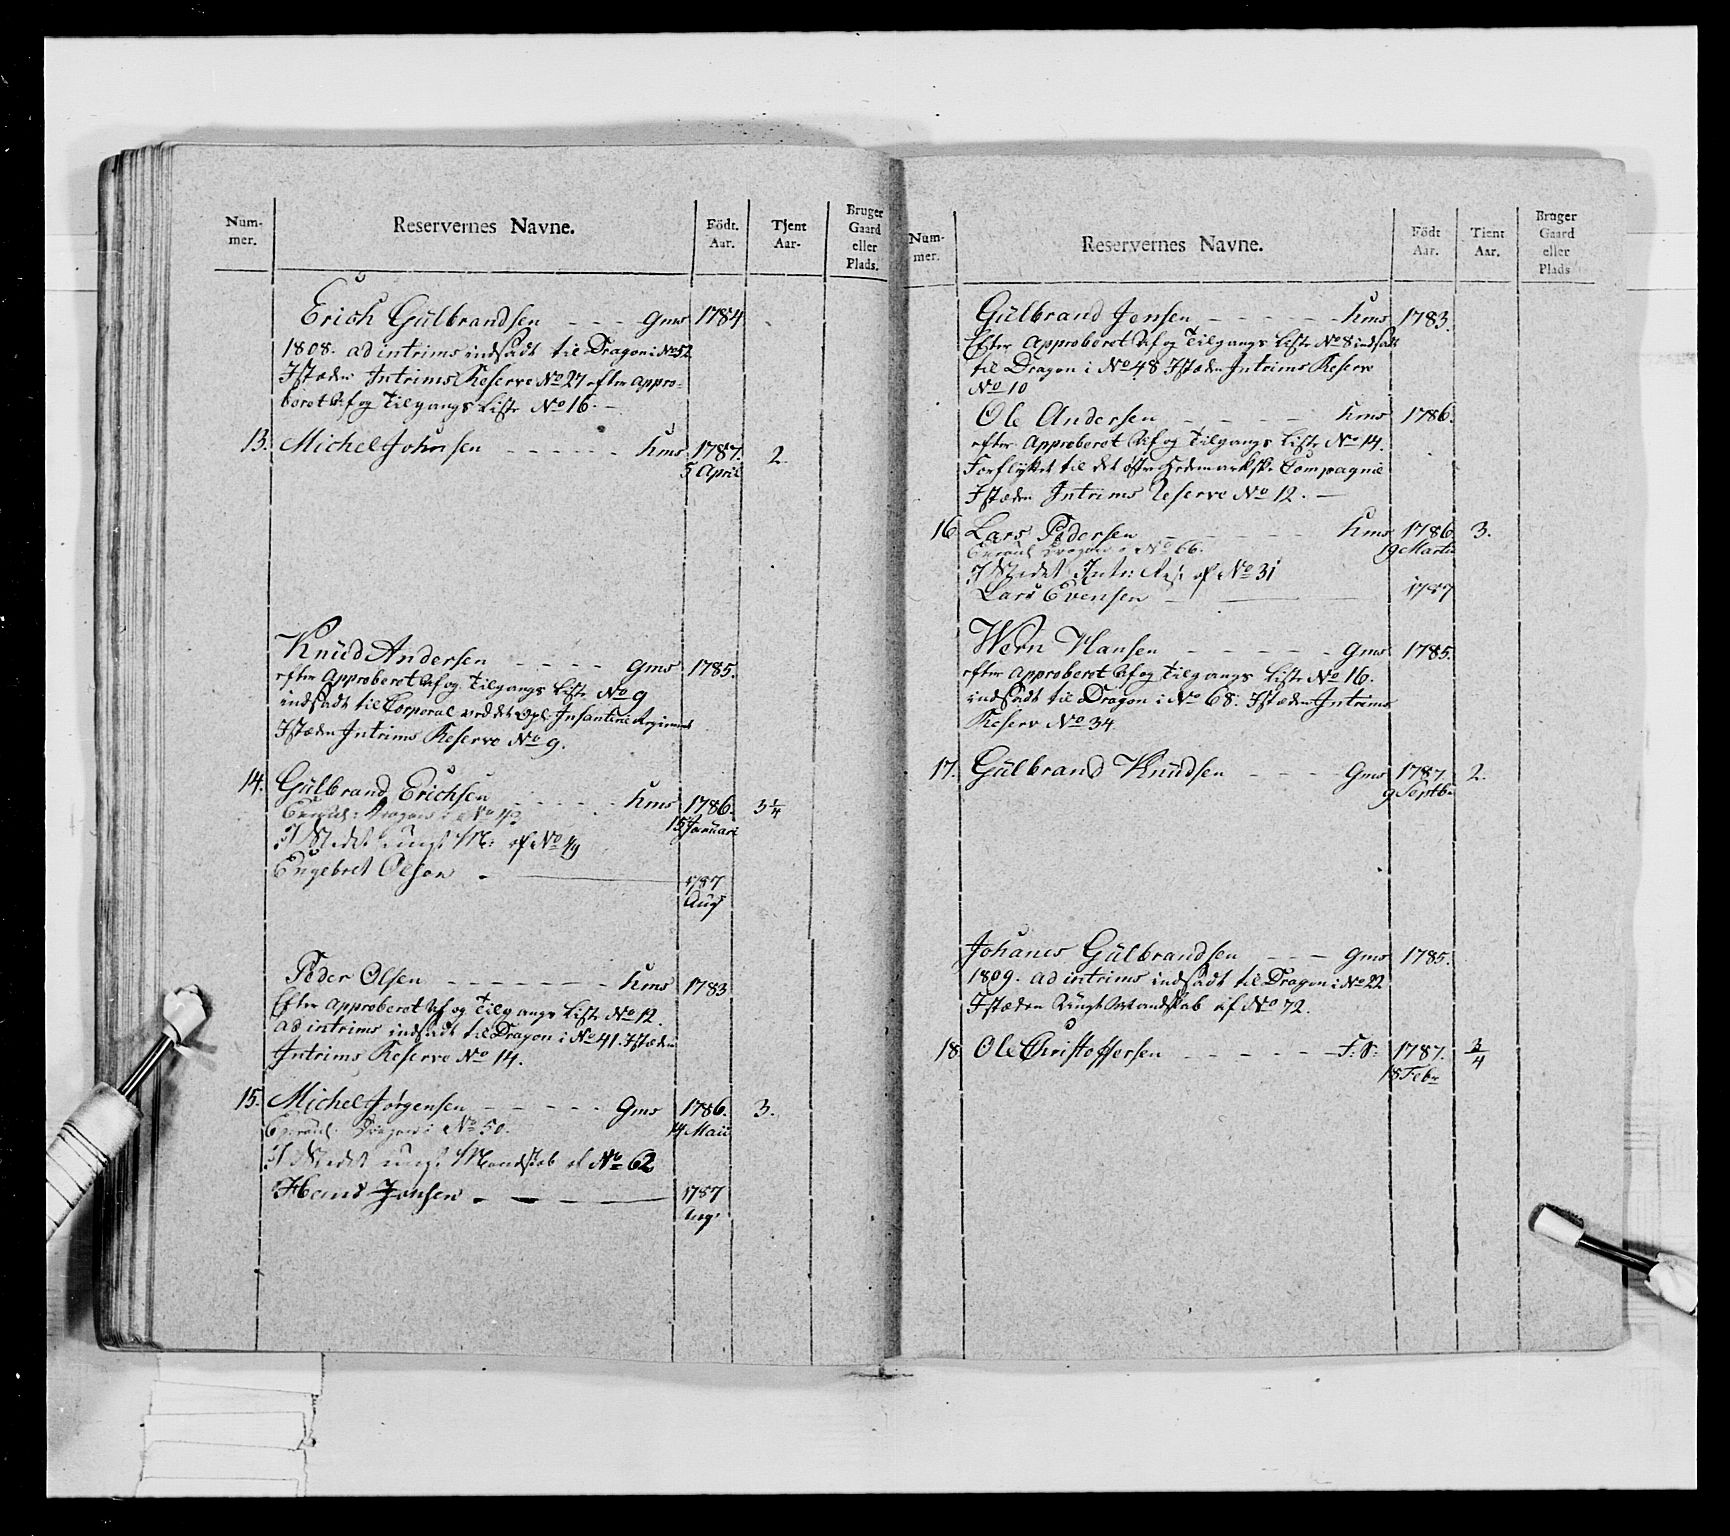 Num-
mer.
Reservernes Navne.
Födt.
Aar.
Tjent
Aar.
Bruger
Gaard
eller
Plads.
Erich Gülbrandsen - - - Gms 1784
1808. ad intrims indsadt til Dragon i No 52
Istæden Intrims Reserve No 27 efter appro-
beret Af og Tilgangs Liste No 16. -
13. Michel Johnsen - - - - - - hms 1787. 2.
5 April
Knüd Andersen - - - - Gms 1785.
efter Approberet Af og Tilgangs Liste No 9
indsadt til Corporal ved det Opl. Infanterie Regiment
Istæden Intrims Reserve No 9.
14. Gülbrand Erichsen - - - - - hms 1786. 3¼
Dragon i No
15 Januari
I Stedet ungt M: af No 49
Engebret Olsen - 1787
Aug
Peder Olsen - - - - - - - hms 1783
Efter Approberet Af og Tilgangs Liste No 12.
ad intrims indsadt til Dragon i No 41. Istæden
Intrims Reserve No 14.
15. Michel Jörgensen - - - - - Gms 1786. 3.
Dragon i No 50.
14 Maii
I Stedet ungt Mandskab af No 62
Hans Jonsen - - - 1787
Aug
Num-
mer.
Reservernes Navne.
Födt
Aar.
Tient
Aar.
Bruger
Gaard
eller
Plads
Gülbrand Jensen - - - - - - hms 1783.
Efter Approberet Af og Tilgangs Liste No 8 indsadt
til Dragon i No 48 Istæden Intrims Reserve
No 10
Ole Andersen - - - - - hms 1786.
efter Approberet Af og Tilgangs Liste No 14.
Forflyttet til det östre Hedemarkske Compagnie
Istæden Intrims Reserve No 12. -
16. Lars Pedersen - - - - - - hms 1786 3.
Dragon i No 66.
19 Martii
I Stedet Intr: Res: af No 31
Lars Evensen - 1787
Wern Hansen - - - - - - Gms 1785.
efter Approberet Af og Tilgangs Liste No 16.
indsadt til Dragon i No 68. Istæden Intrims
Reserv No 34.
17. Gülbrand Knüdsen - - - - Gms 1787. 2.
9 Septbr
Johanes Gülbrandsen - - - Gms 1785.
1809. ad intrims indsadt til Dragon i No 22
Istæden Ungt Mandskab af No 72.
18 Ole Christoffersen - - - - - - F: S: 1787. 3/4
18 Febr